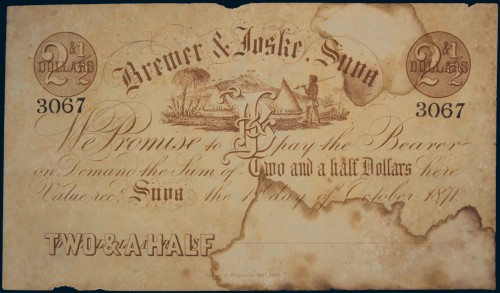 Brewer & Joske, Suva
2 & 1/2 DOLLARS
2 & 1/2 DOLLARS
3067
3067
We Promise to pay the Bearer
on Demand the Sum of Two and a half Dollars here
Value recd. Suva the 1st day of October 1871.
TWO-&-A-HALF